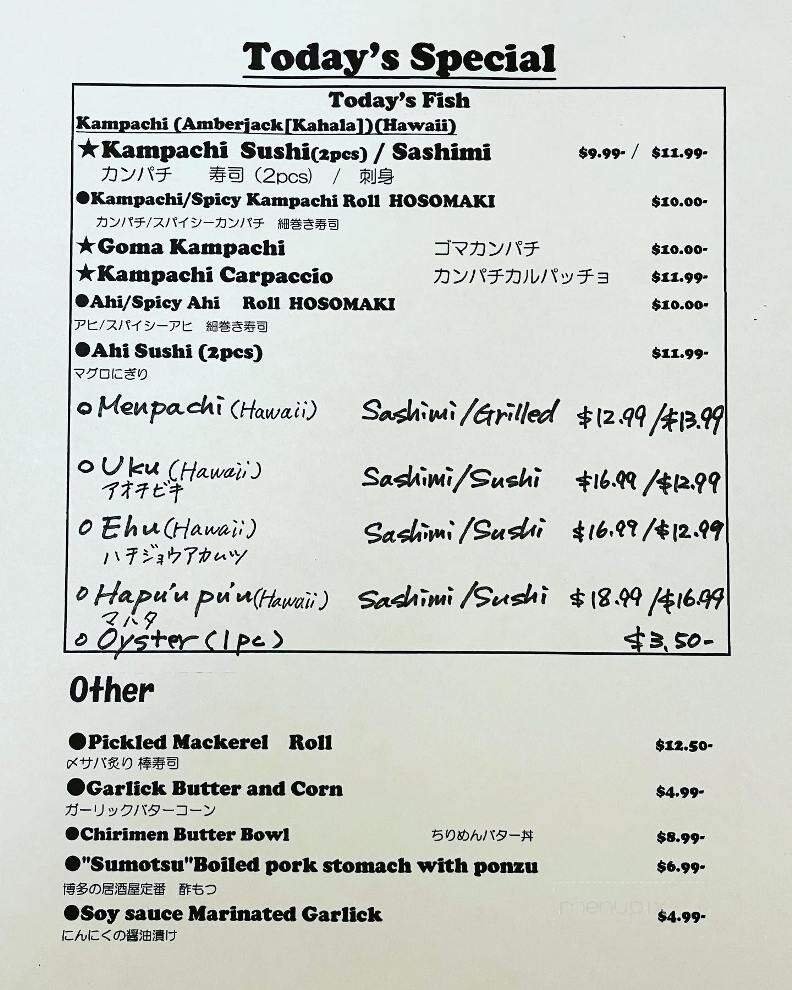 Today's Special
Today's Fish
Kampachi (Amberjack[Kahala])(Hawaii)
★Kampachi Sushi(2pcs) / Sashimi $9.99- / $11.99-
カンパチ 寿司（2pcs） / 刺身
●Kampachi/Spicy Kampachi Roll HOSOMAKI $10.00-
カンパチ/スパイシーカンパチ 細巻き寿司
★Goma Kampachi ゴマカンパチ $10.00-
★Kampachi Carpaccio カンパチカルパッチョ $11.99-
●Ahi/Spicy Ahi Roll HOSOMAKI $10.00-
アヒ/スパイシーアヒ 細巻き寿司
●Ahi Sushi (2pcs) $11.99-
マグロにぎり
○ Menpachi (Hawaii) Sashimi/Grilled $12.99/$13.99
○ Uku (Hawaii) Sashimi/Sushi $16.99/$12.99
アオチビキ
○ Ehu (Hawaii) Sashimi/Sushi $16.99/$12.99
ハチジョウアカムツ
○ Hapu'u pu'u (Hawaii) Sashimi/Sushi $18.99/$16.99
マハタ
○ Oyster (1pc) $3.50-
Other
●Pickled Mackerel Roll $12.50-
〆サバ炙り 棒寿司
●Garlick Butter and Corn $4.99-
ガーリックバターコーン
●Chirimen Butter Bowl ちりめんバター丼 $8.99-
●"Sumotsu"Boiled pork stomach with ponzu $6.99-
博多の居酒屋定番 酢もつ
●Soy sauce Marinated Garlick $4.99-
にんにくの醤油漬け